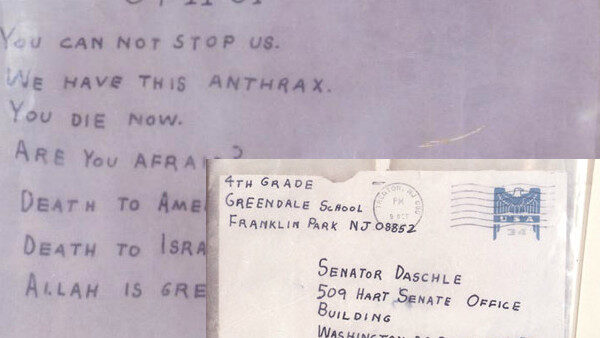 YOU CAN NOT STOP US.
WE HAVE THIS ANTHRAX.
YOU DIE NOW.
ARE YOU AFRA?
DEATH TO AME
DEATH TO ISRA
ALLAH IS GRE
4TH GRADE
GREENDALE SCHOOL
FRANKLIN PARK NJ 08852
PM
USA
34
SENATOR DASCHLE
509 HART SENATE OFFICE
BUILDING
WASHINGTON